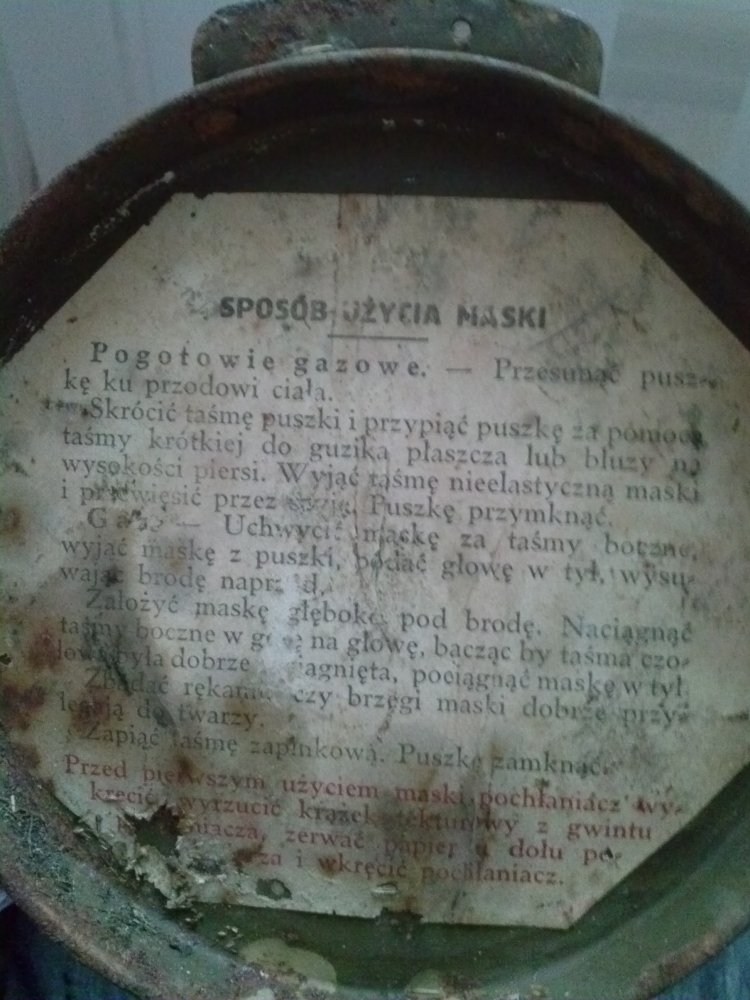 SPOSÓB UŻYCIA MASKI
Pogotowie gazowe. — Przesunąć pusz-
kę ku przodowi ciała.
Skrócić taśmę puszki i przypiąć puszkę za pomocą
taśmy krótkiej do guzika płaszcza lub bluzy na
wysokości piersi. Wyjąć taśmę nieelastyczną maski
i przewiesić przez szyję. Puszkę przymknąć.
— Uchwycić maskę za taśmy boczne,
wyjąć maskę z puszki, podać głowę w tył, wysu-
wając brodę naprzód,
Założyć maskę głęboko pod brodę. Naciągnąć
taśmy boczne w górę na głowę, bacząc by taśma czo-
łowa była dobrze pociągnąć maskę w tył.
Zbadać rękami czy brzegi maski dobrze przy-
legają do twarzy.
Zapiąć taśmę zapinkową. Puszkę zamknąć.
Przed pierwszym użyciem maski pochłaniacz wy-
kręcić, wyrzucić krążek tekturowy z gwintu
zerwać papier u dołu po-
i wkręcić pochłaniacz.